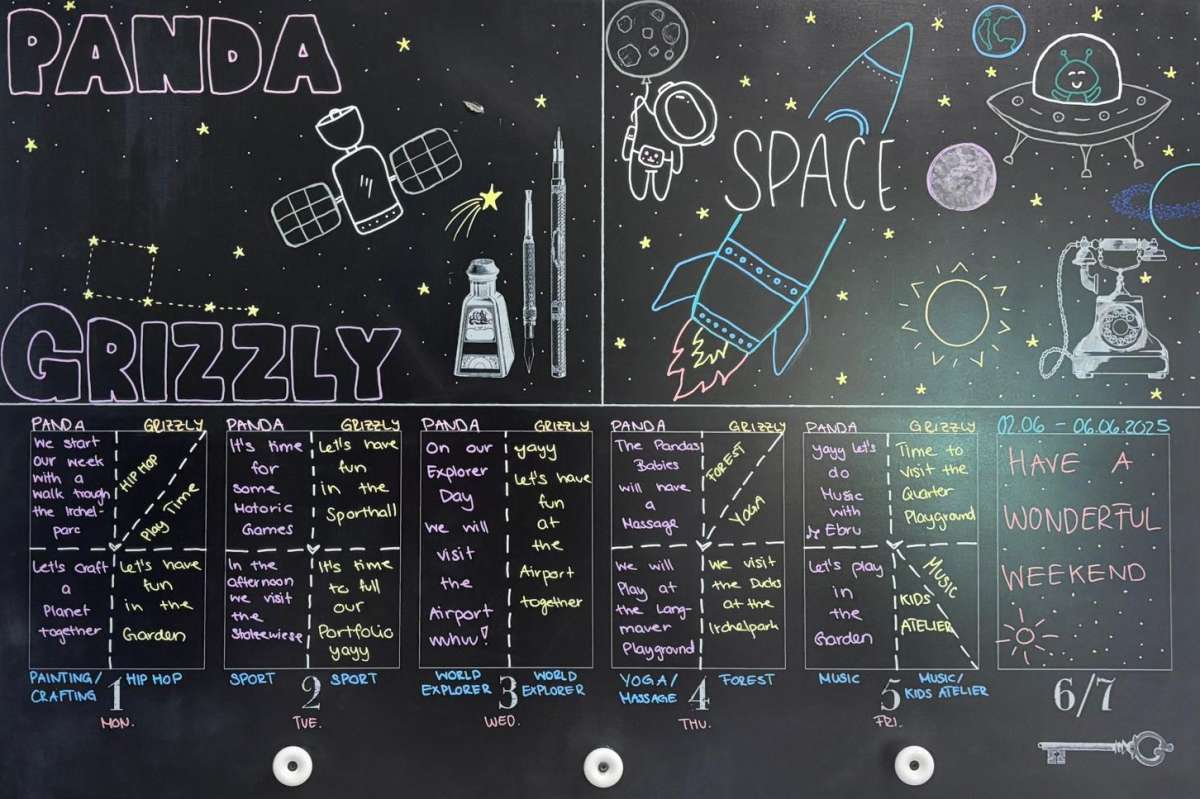 PANDA
GRIZZLY
SPACE
PANDA GRIZZLY
We start
our week
with a
walk trough
the Irchel-
parc
HIP HOP
Play Time
Let's craft
a
Planet
together
Let's have
fun
in the
Garden
PAINTING/
CRAFTING
HIP HOP
1
MON.
PANDA GRIZZLY
It's time
for
some
Motoric
Games
Let's have
fun
in the
Sporthall
In the
afternoon
we visit
the
Stolzewiese
It's time
to full
our
Portfolio
yayy
SPORT
SPORT
2
TUE.
PANDA GRIZZLY
On our
Explorer
Day
we will
visit
the
Airport
wuhu!
yayy
Let's have
fun
at
the
Airport
together
WORLD
EXPLORER
WORLD
EXPLORER
3
WED.
PANDA GRIZZLY
The Pandas
Babies
will have
a
Massage
FOREST
YOGA
We will
Play at
the Lang-
maver
Playground
We visit
the Ducks
at the
Irchelpark
YOGA/
MASSAGE
FOREST
4
THU.
PANDA GRIZZLY
yayy Let's
do
Music
with
Ebru
Time to
visit the
Quarter
Playground
Let's play
in
the
Garden
MUSIC
KIDS
ATELIER
MUSIC
MUSIC/
KIDS ATELIER
5
FRI.
02.06 - 06.06.2025
HAVE A
WONDERFUL
WEEKEND
6/7